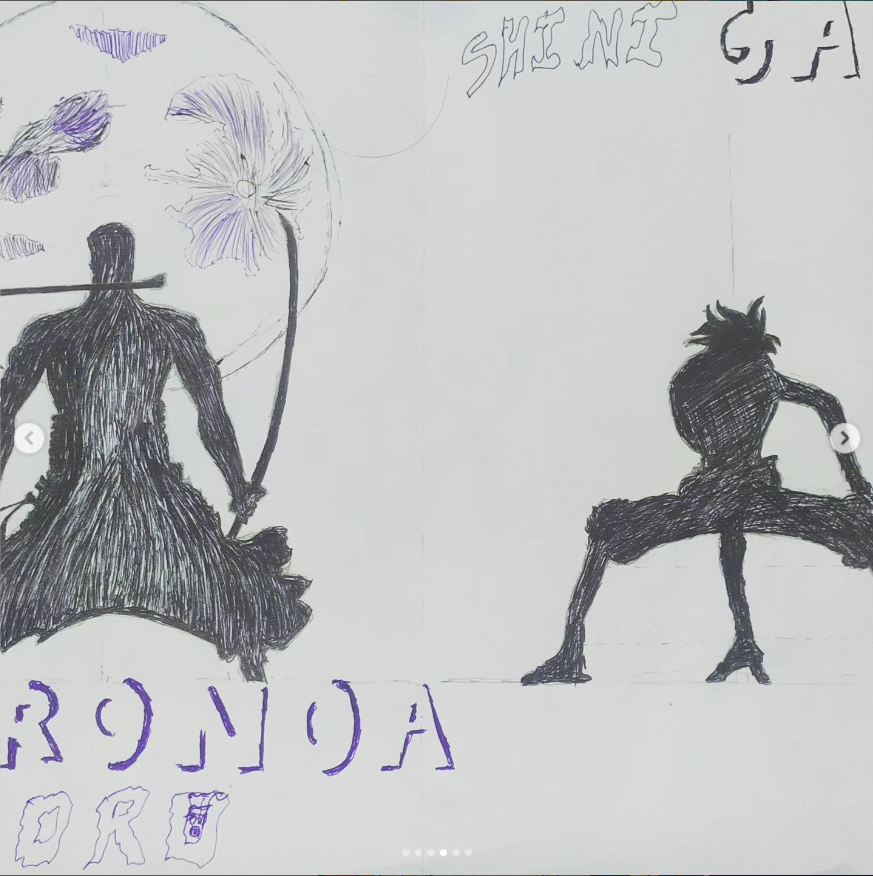 SHINI GA
RONOA
ORO